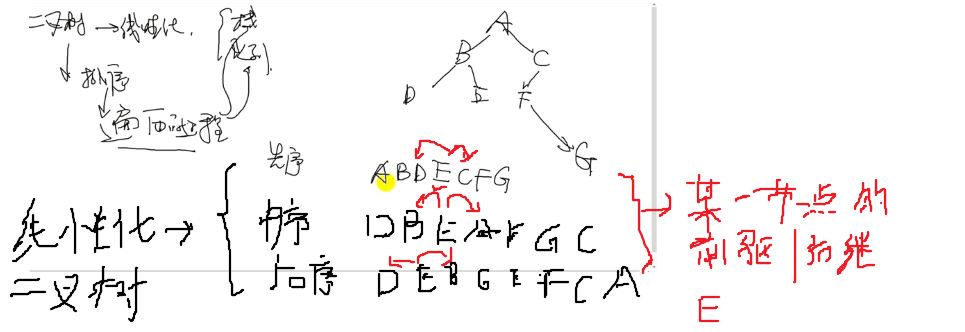 二叉树 → 线性化.
栈
队列
排序
遍历过程
A
B C
D E F
G
先序 ABDECFG
线性化 → 中序 DBEAFGC
二叉树 后序 DEBG FCA
某一节点的
前驱|后继
E